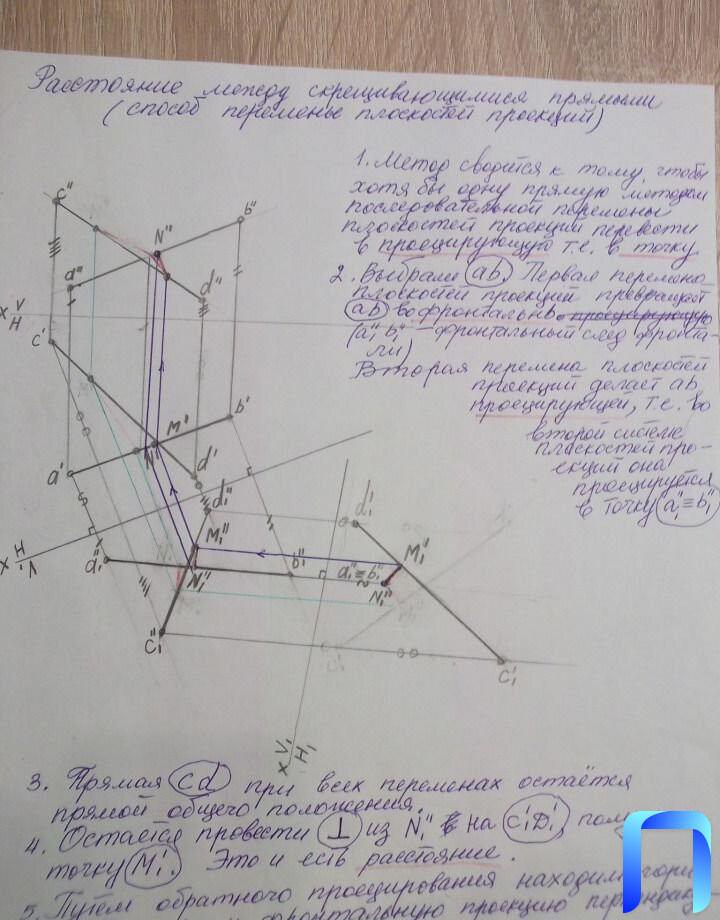 Расстояние между скрещивающимися прямыми
(способ перемены плоскостей проекций)
1. Метод сводится к тому, чтобы
хотя бы одну прямую методом
последовательной перемены
плоскостей проекций перевести
в проецирующую т.е. в точку.
2. Выбрали ab. Первая перемена
плоскостей проекций превращает
ab во фронталь
(a₁" b₁" – фронтальный след фронта-
ли)
Вторая перемена плоскостей
проекций делает ab
проецирующей, т.е. во
второй системе
плоскостей про-
екций она
проецируется
в точку a₁"≡b₁"
c"
b"
N"
a"
d"
x V/H
c'
M'
b'
N'
a'
d'
d₁"
d₁'
x H/V₁
M₁"
M₁"
a₁"
b₁"
a₁"≡b₁"
N₁"
N₁"
c₁"
c₁'
x V₁/H₁
3. Прямая cd при всех переменах остаётся
прямой общего положения.
4. Остаётся провести ⊥ из N₁" на C₁'D₁',
точку M₁'. Это и есть расстояние.
5. Путём обратного проецирования находим
фронтальную проекцию